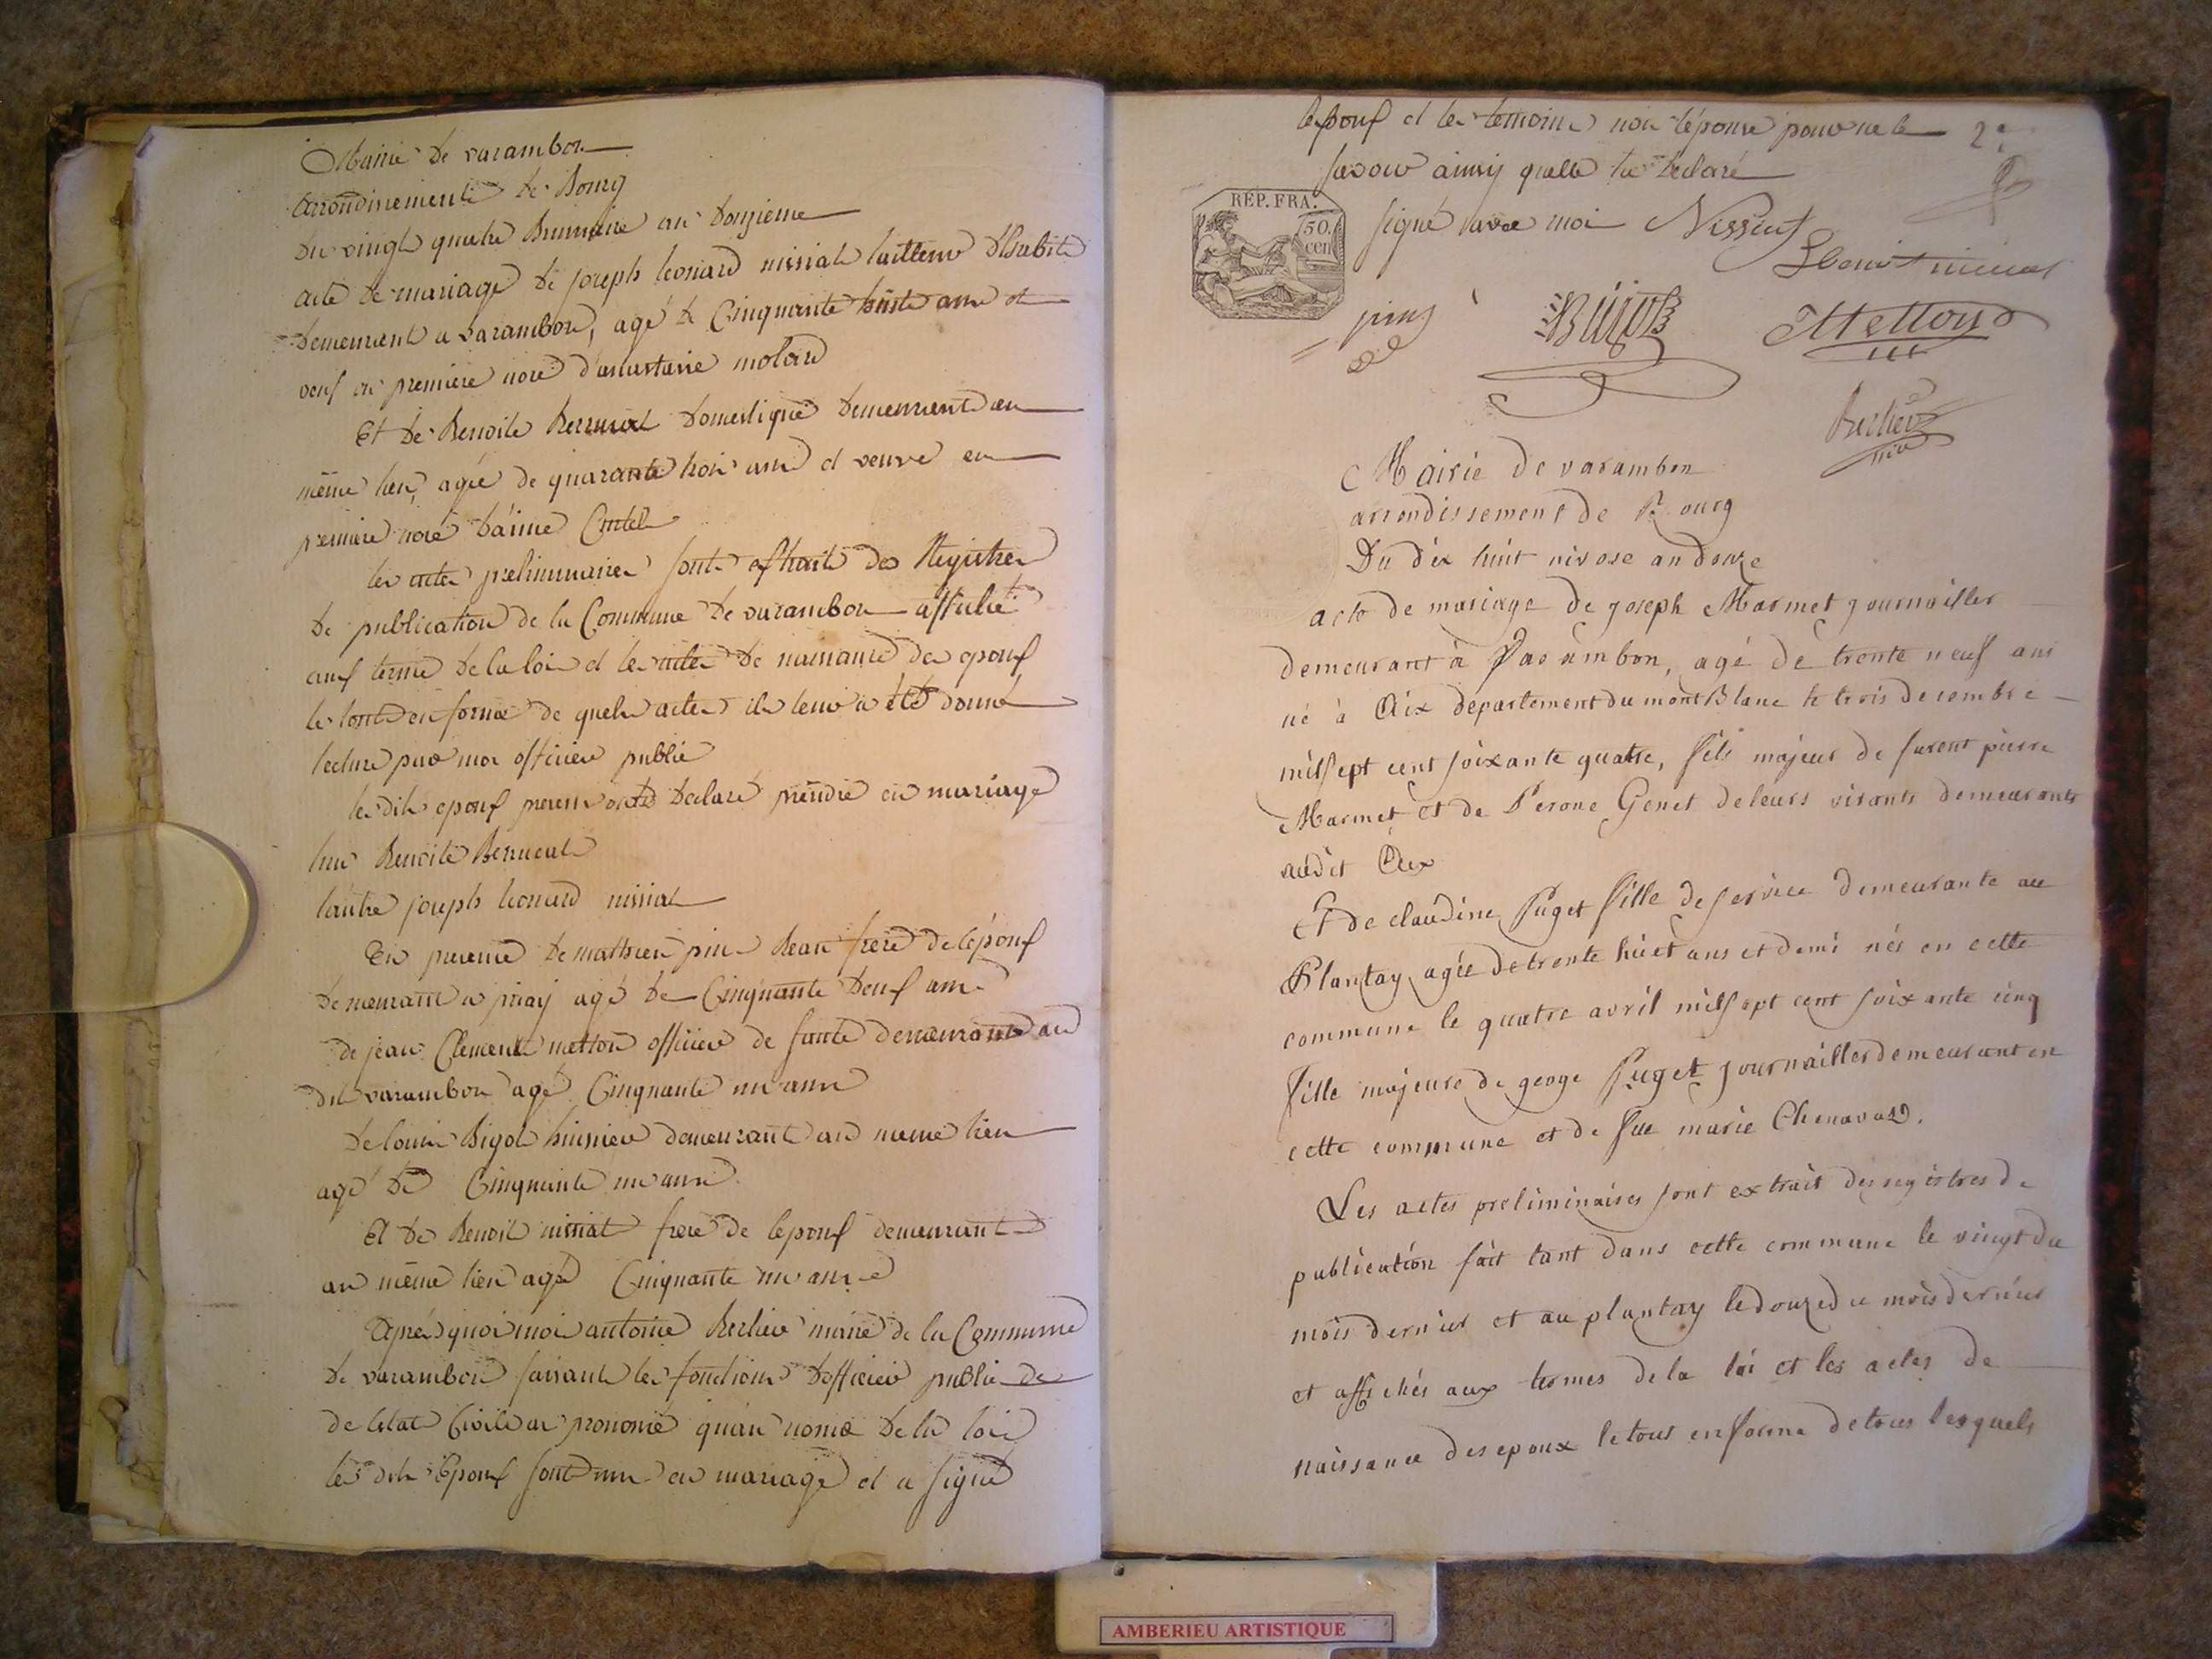 Mairie de varambon
arrondinement de Bourg
du vingt quatre Brumaire an douzieme
acte de mariage de joseph leonard nissiat tailleur d'habits
demeurant a varambon, agé de Cinquante huit ans et
veuf en premiere noce d'anastasie molard
Et de Benoite domestique demeurant au
même lieu, agée de quarante trois ans et veuve en
premiere noce d'aimé
les actes preliminaires sont extrait des Registres
de publication de la Commune de varambon affiché
aux terme de la loi et les actes de naissance des epoux
le tout en forme de quels actes il leur a été donné
lecture par moi officier public
les dits epoux presents ont declaré prendre en mariage
lun Benoite
lautre joseph leonard nissiat
En presence de mathieu pin Beau frere de lépoux
demeurant a agé de Cinquante deux ans
de jean Clement metton officier de santé demeurant au
dit varambon agé Cinquante un ans
de louis Bigot huissier demeurant au meme lieu
agé de Cinquante un ans
Et de Benoit nissiat frere de lepoux demeurant
au même lieu agé Cinquante un ans
Après quoi moi antoine Berlier maire de la Commune
de varambon faisant les fonctions d'officier public de
de letat Civile ai prononcé qu'au nom de la loi
les dits Epoux sont unis en mariage et a signé
lepoux et les temoins non lépouse pour ne le 2e
savoir ainsy quelle la declaré
REP. FRA.
50. cen
signé avec moi Nissiat
Benoit nissiat
pin
Bigot
Metton
Berlier
Mairie de varambon
arrondissement de Bourg
Du dix huit nivose an douze
acte de mariage de joseph Marmet journailler
demeurant à Varambon, agé de trente neuf ans
né à Aix departement du mont Blanc le trois decembre
mil sept cent soixante quatre, fils majeur de furent pierre
Marmet et de Perone Genet de leurs vivants demeurants
audit Aix
Et de claudine Puget fille de service demeurante au
Plantay agée de trente huit ans et demi née en cette
commune le quatre avril mil sept cent soixante cinq
fille majeure de geoge Puget journailler demeurant en
cette commune et de fue marie Chenavard.
Les actes preliminaires sont extrait des registres de
publication fait tant dans cette commune le vingt du
mois dernier et au plantay le douze du mois dernier
et affichés aux termes de la loi et les actes de
naissance des epoux le tout en forme de tous lesquels
AMBERIEU ARTISTIQUE